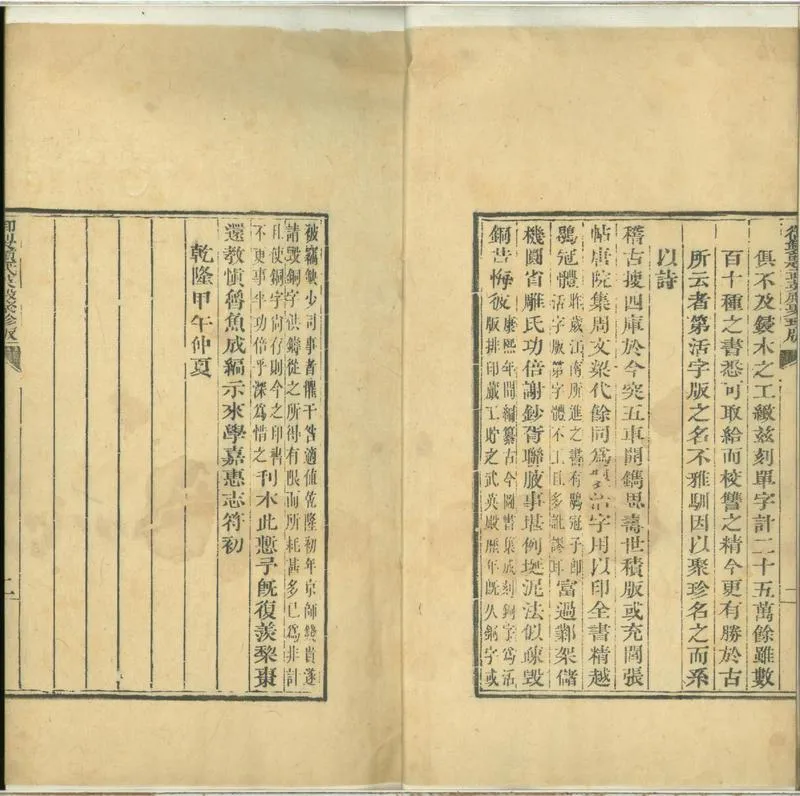 俱不及鋟木之工緻茲刻單字計二十五萬餘雖數
百十種之書悉可取給而校讐之精今更有勝於古
所云者第活字版之名不雅馴因以聚珍名之而系
以詩
稽古搜四庫於今突五車開鐫思壽世積版或充閭張
帖唐院集周文梁代餘同爲活字用以印全書精越
鶡冠體
昨歲江南所進之書有鶡冠子即
活字版第字體不工且多訛謬耳
富過鄴架儲
機圜省雕氏功倍謝鈔胥聯腋事堪例埏泥法似疎毀
銅昔悔彼
康熙年間編纂古今圖書集成刻銅字爲活
版排印蕆工貯之武英殿歷年既久銅字或
被竊缺少司事者懼干咎適值乾隆初年京師錢貴遂
請毀銅字供鑄從之所得有限而所耗甚多已爲非計
且使銅字尚存則今之印書
不更事半功倍乎深爲惜之
刊木此慙予旣復羨棃棗
還教慎魯魚成編示來學嘉惠志符初
乾隆甲午仲夏
二